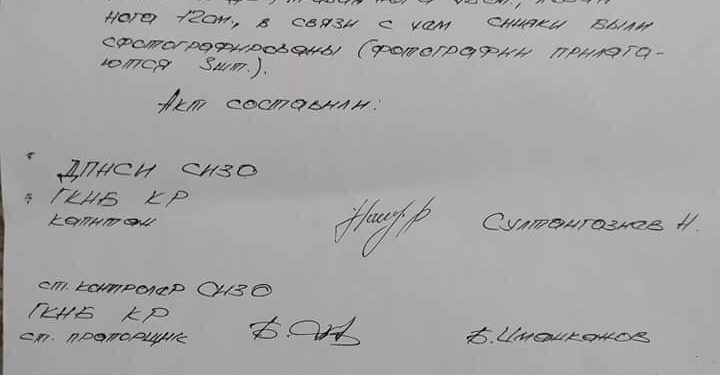 нога 12см., в связи с чем синяки были
сфотографированы (фотографии прилага-
ются 3шт.).
Акт составили:
ДПНСИ СИЗО
ГКНБ КР
капитан Султангазиев Н.
ст. контролер СИЗО
ГКНБ КР
ст. прапорщик Б. Иманканов